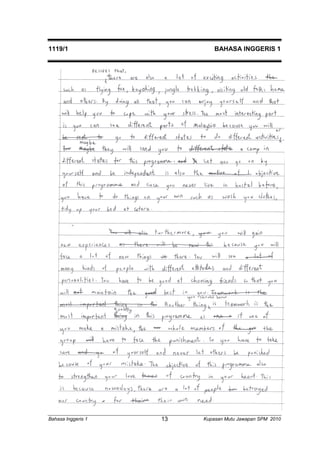 1119/1 BAHASA INGGERIS 1
Besides that,
there are also a lot of exciting activities the
such as flying fox, kayaking, jungle trekking, visiting old folks home
and others. By doing as that, you can enjoy yourself and that
will help you to cope with your stess. The most interesting part
is you can see different parts of Malaysia because you will
be sent to go to different states to do different activities.
maybe
for maybe they will send you to different state a camp in
different states for this programme and So let you go on by
yourself and be independent is also the objective
of this programme and since you never live in hostel before,
you have to do things on your own such as wash you clothes,
tidy up your bed at cetera.
Furthermore, you will gain
new experiences as there will be because you will
face a lot of new things there. You will see
many kinds of people with different attitudes and different
personalities. You have to be good at choosing friends so that you
will not
you should know
most important thing is the Another thing, is teamwork is the
most important thing in this programme as if one of
you make a mistake, the whole members of the group the
group will have to face the punishment. So you have to take
care and you of yourself and never let others be punished
because of your mistake. The objective of this programme also
to strengthen your love of country in your heart. This
is because nowadays, there are a lot of people betrayed
our country for their own need
Bahasa Inggeris 1 13 Kupasan Mutu Jawapan SPM 2010